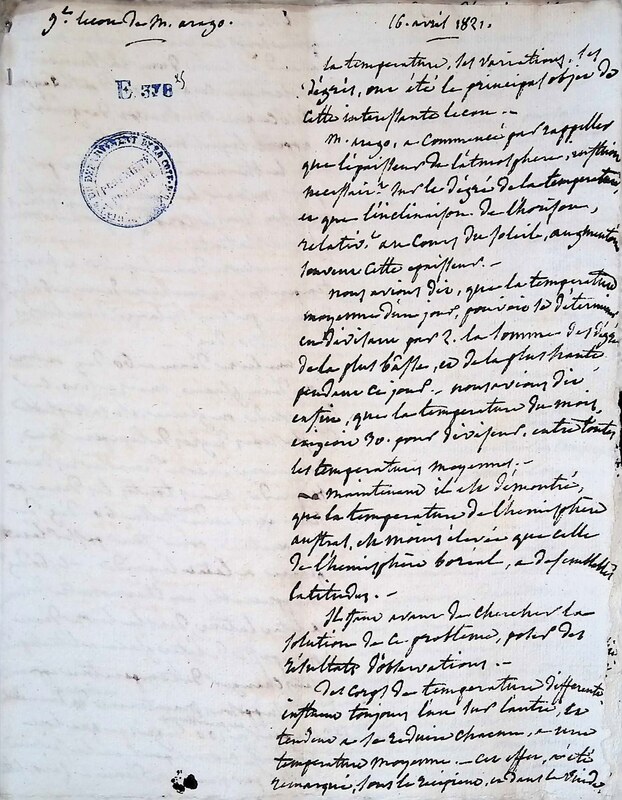 9e. lecon de M. arago.
16. avril 1821.
E 378 25
la temperature, ses variations, ses
dégrés, ont été le principal objet de
cette interessante lecon. -
M. arago, a commencé par rappeller
que l'épaisseur de l'atmosphere, influe
necessairt. sur le dégré de la temperature
et que l'inclinaison de l'horison,
relativt. au cours du soleile, augmente
souvent cette epaisseur. -
nous avions dit, que la temperature
moyenne d'un jour, pouvoit se déterminer
en divisant par 2. la somme des dégrés
de la plus bâsse, et de la plus haute
pendant ce jour. - nous avions dit
enfin, que la temperature du mois,
exigeoit 30. pour diviseur, entre toutes
les temperatures moyennes. -
maintenant il est démontré,
que la temperature de l'hemisphère
austral, est moins élevée que celle
de l'hemisphère boréal, a de semblables
latitudes. -
Il faut avant de chercher la
solution de ce problème, poser des
résultats d'observations. -
Des corps de temperature differente
influent toujours l'un sur l'autre, et
tendent a se reduire chacun, a une
temperature moyenne. - cet effet, a été
remarqué, sous le recipient, et dans le vuide